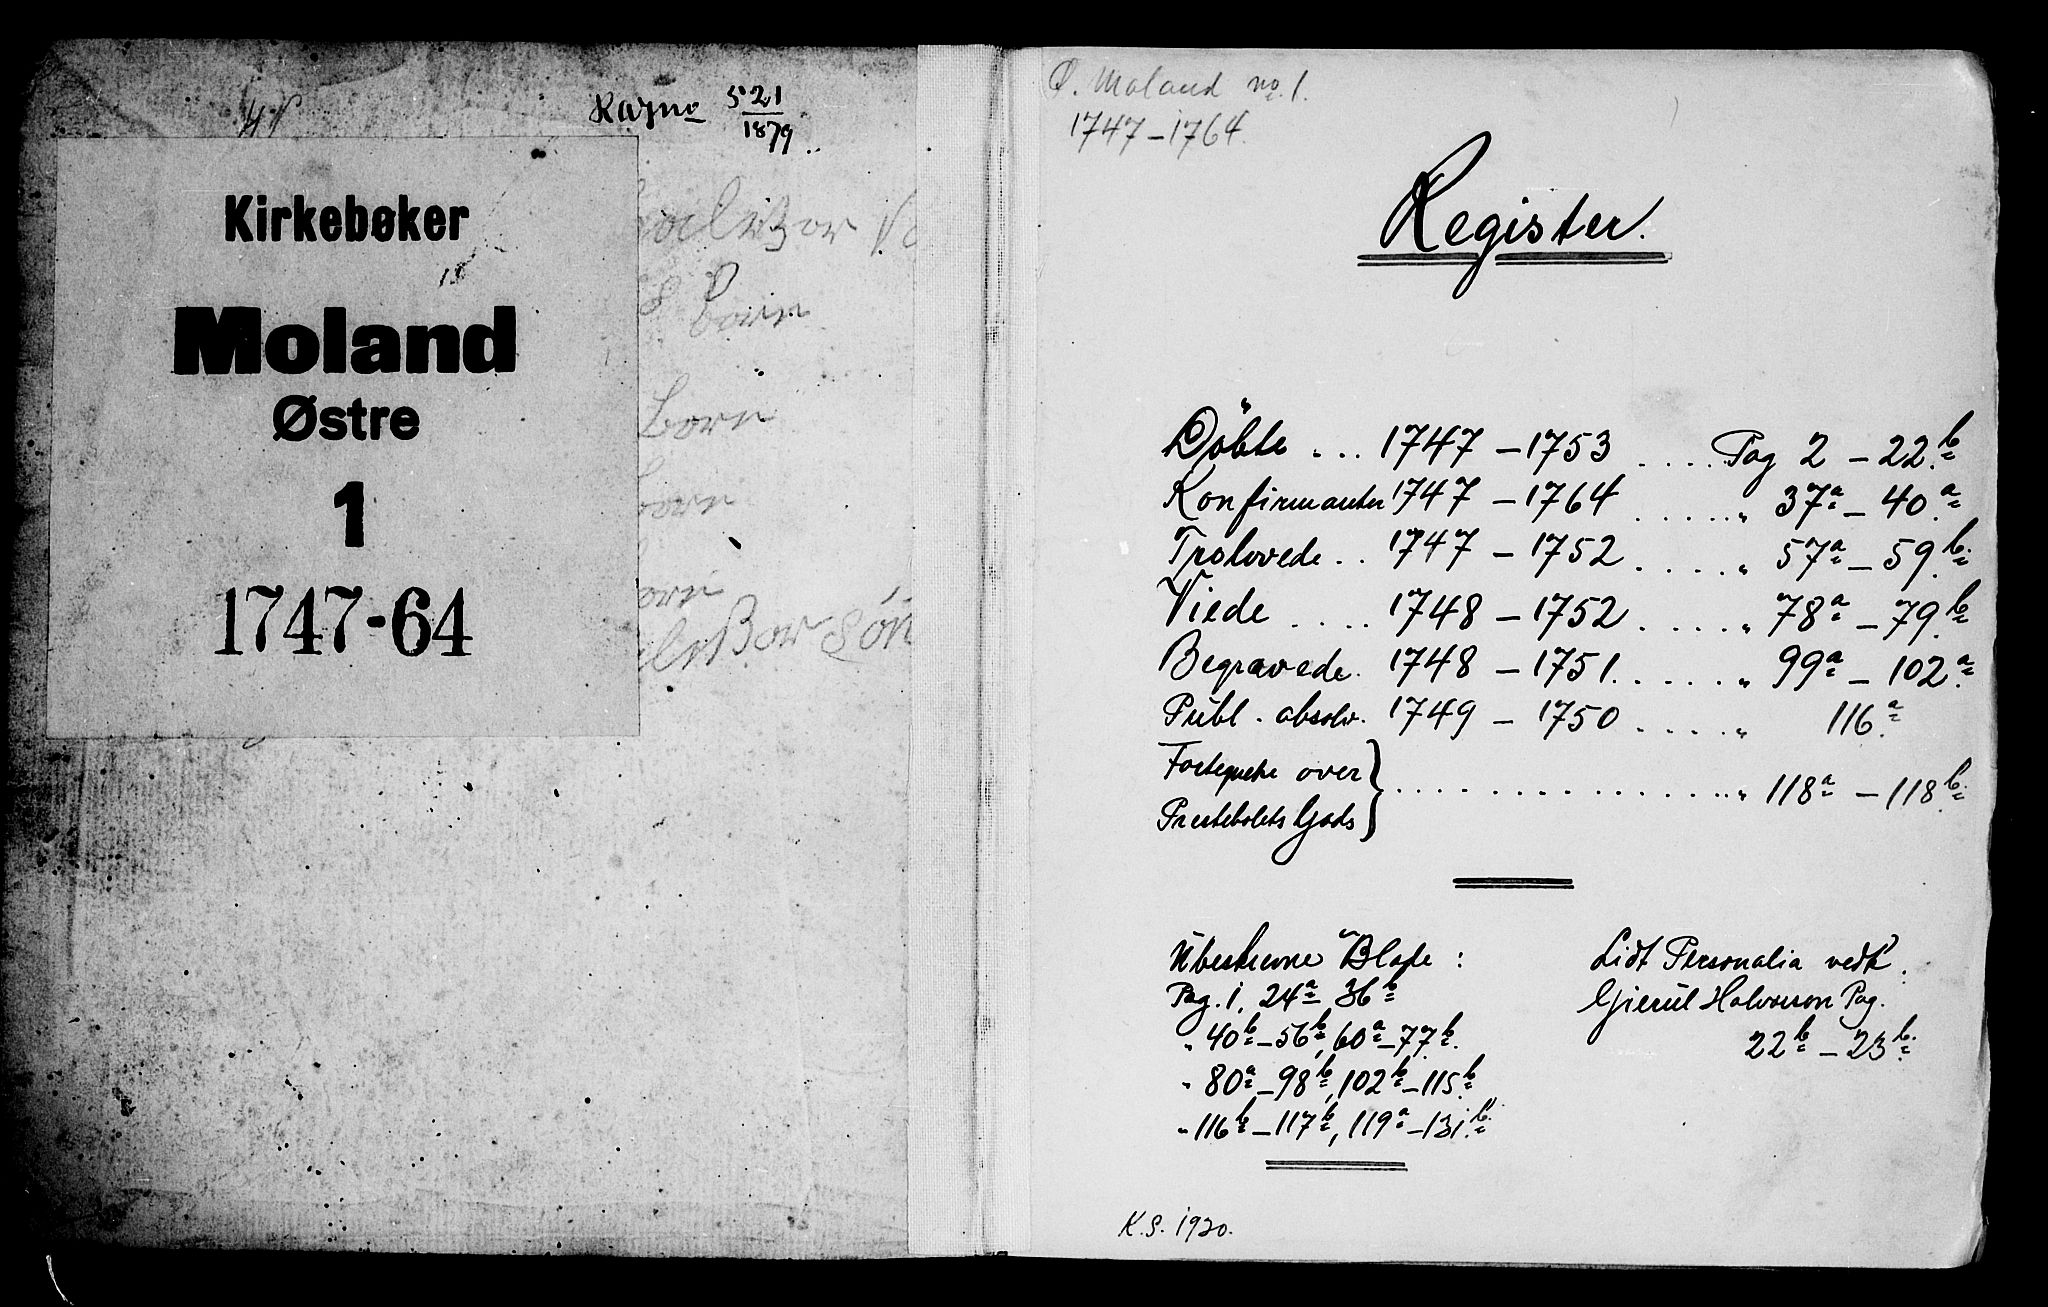 521
1879
Kirkebøker
Moland
Østre
1
1747-64
Born
Born
Ø. Moland no. 1.
1747-1764.
Register.
Döbte ... 1747 - 1753 .... Pag 2 - 22b
Konfirmanter 1747 - 1764 ...... " 37a - 40a
Trolovede .. 1747 - 1752 ...... " 57a - 59b
Viede .... 1748 - 1752 ...... " 78a - 79b
Begravede. 1748 - 1751 ...... " 99a - 102a
Publ. absolv. 1749 - 1750 ..... " 116a
Fortegnelse over
Prestebolets Gods } ................ " 118a - 118b
Ubeskrevne Blade :
Pag. 1, 24a - 36b
" 40b - 56b, 60a - 77b
" 80a - 98b, 102b - 115b
" 116b - 117b, 119a - 131b
Lidt Personalia vedk.
Gjerul Halvorson Pag.
22b - 23b
K.S. 1920.